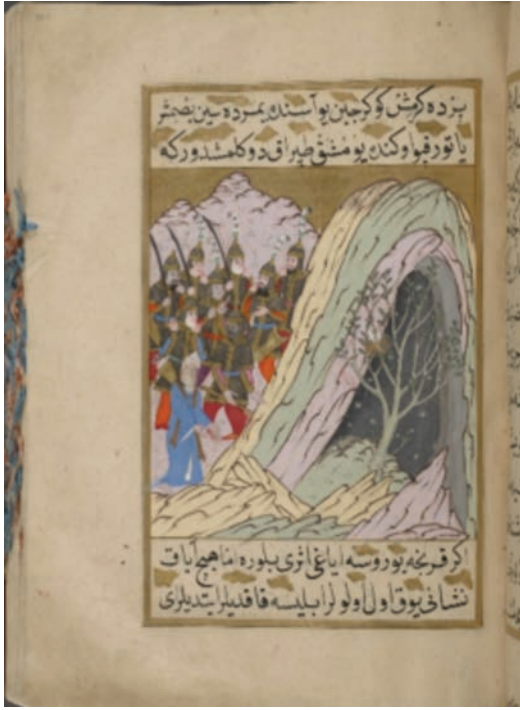 پرده کرمش کوکرجین یوآسنده یمرده سین بصمشر
یاتور قپو اوکنده یومشق طپراق دوکلمشدور که
اکر قرنجه یوروسه ایاغی اثری بلوره اما هیچ آیاق
نشانی یوق اول اولولر ابلیسه قاقدیلر ایتدیلری